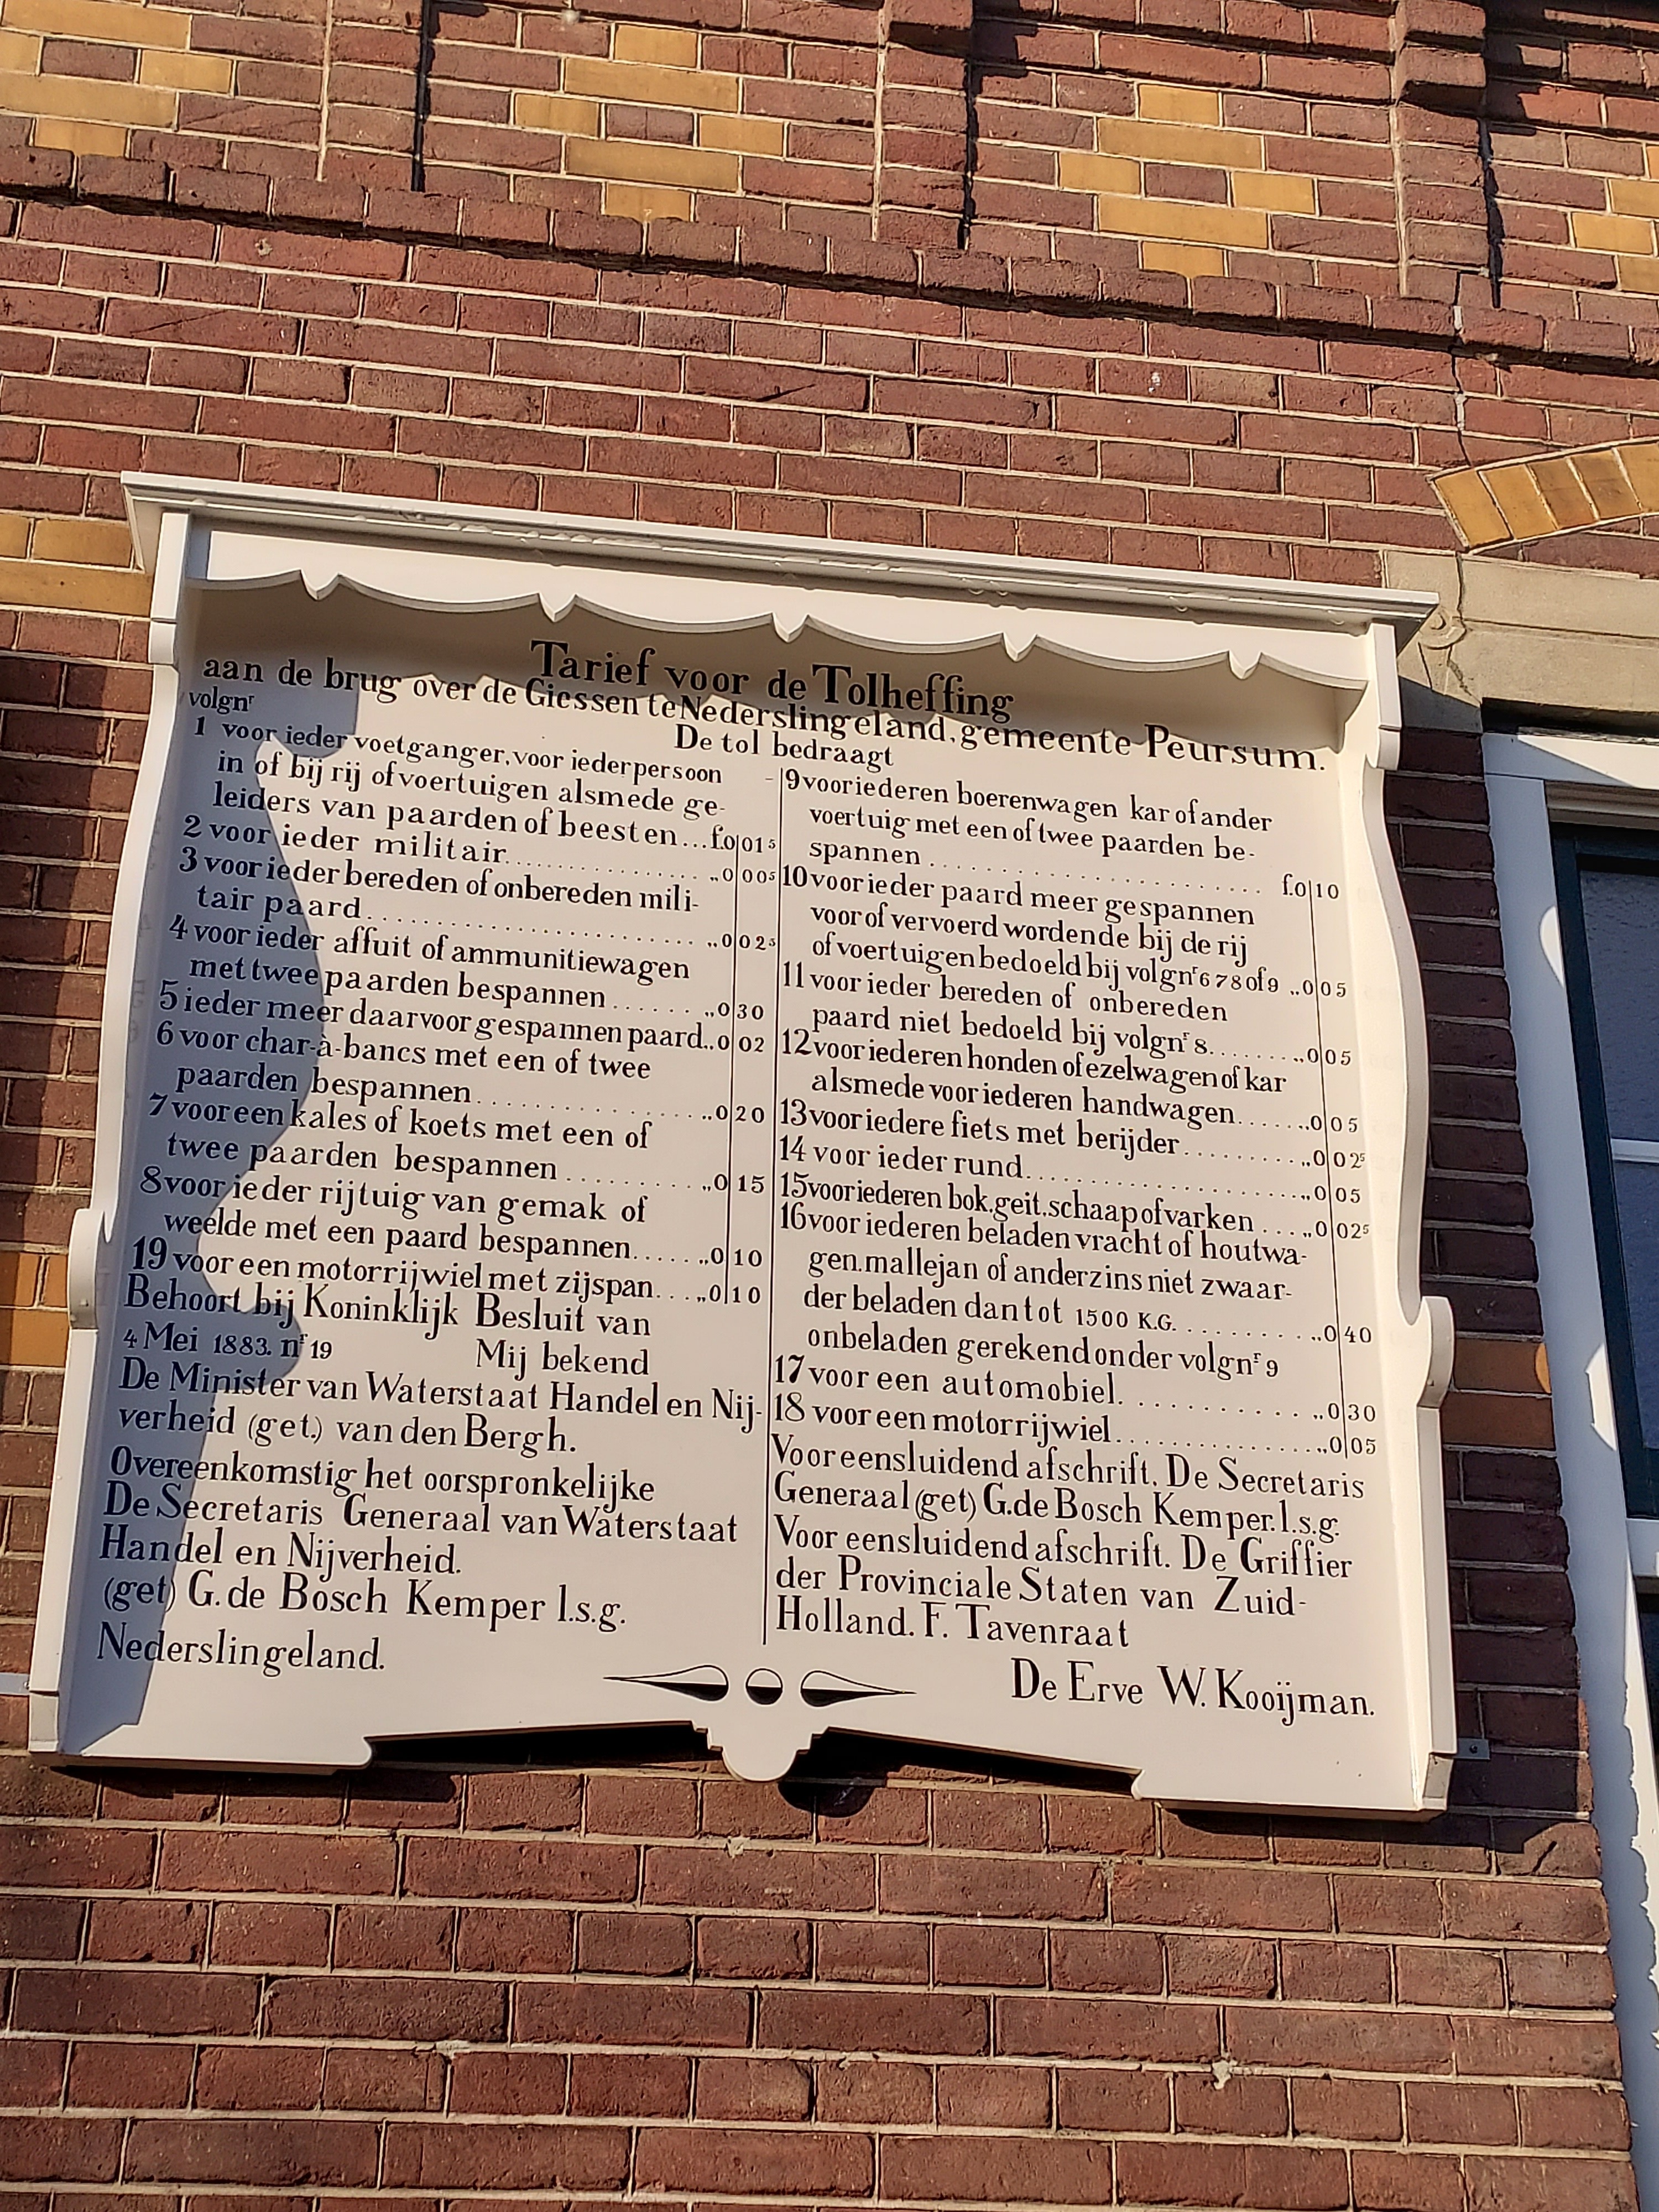 Tarief voor de Tolheffing
aan de brug over de Giessen te Nederslingeland, gemeente Peursum.
De tol bedraagt
volgnr
1 voor ieder voetganger, voor ieder persoon
in of bij rij of voertuigen alsmede ge-
leiders van paarden of beesten... f.0|015
2 voor ieder militair.............. „0|005
3 voor ieder bereden of onbereden mili-
tair paard.............................. „0|025
4 voor ieder affuit of ammunitiewagen
met twee paarden bespannen ...... „0|30
5 ieder meer daarvoor gespannen paard.. „0|02
6 voor char-à-bancs met een of twee
paarden bespannen................. „0|20
7 voor een kales of koets met een of
twee paarden bespannen.......... „0|15
8 voor ieder rijtuig van gemak of
weelde met een paard bespannen..... „0|10
19 voor een motorrijwiel met zijspan... „0|10
Behoort bij Koninklijk Besluit van
4 Mei 1883. nr 19 Mij bekend
De Minister van Waterstaat Handel en Nij-
verheid (get.) van den Bergh.
Overeenkomstig het oorspronkelijke
De Secretaris Generaal van Waterstaat
Handel en Nijverheid.
(get) G. de Bosch Kemper l.s.g.
Nederslingeland.
9 voor iederen boerenwagen kar of ander
voertuig met een of twee paarden be-
spannen ........................ f.0|10
10 voor ieder paard meer gespannen
voor of vervoerd wordende bij de rij
of voertuigen bedoeld bij volgnr 6 7 8 of 9 „0|05
11 voor ieder bereden of onbereden
paard niet bedoeld bij volgnr 8........ „0|05
12 voor iederen honden of ezelwagen of kar
alsmede voor iederen handwagen...... „0|05
13 voor iedere fiets met berijder.......... „0|025
14 voor ieder rund........................ „0|05
15 voor iederen bok. geit. schaap of varken .... „0|025
16 voor iederen beladen vracht of houtwa-
gen. mallejan of anderzins niet zwaar-
der beladen dan tot 1500 K.G. ......... „0|40
onbeladen gerekend onder volgnr 9
17 voor een automobiel. ........... „0|30
18 voor een motorrijwiel................. „0|05
Voor eensluidend afschrift. De Secretaris
Generaal (get) G. de Bosch Kemper. l.s.g.
Voor eensluidend afschrift. De Griffier
der Provinciale Staten van Zuid-
Holland. F. Tavenraat
De Erve W. Kooijman.